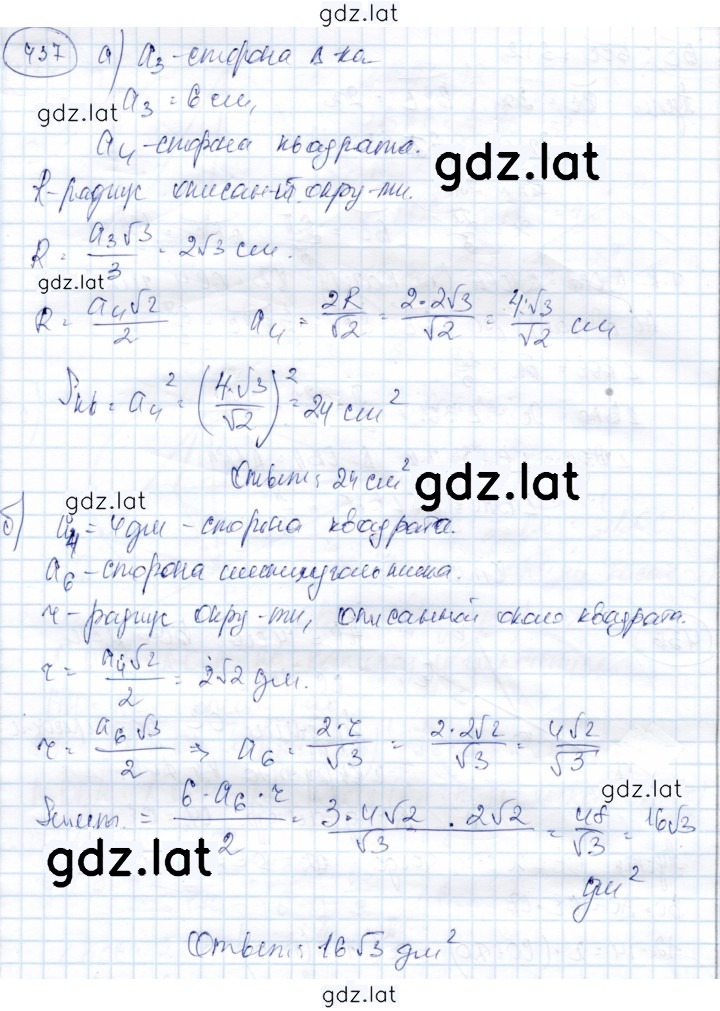 gdz.lat
437 а) a₃ - сторона Δ-ка
gdz.lat
a₃ = 6 см,
a₄ - сторона квадрата.
gdz.lat
R - радиус описан-й окру-ти.
R = a₃√3/3 = 2√3 см.
gdz.lat
R = a₄√2/2 a₄ = 2R/√2 = 2·2√3/√2 = 4·√3/√2 см
Sкв = a₄² = (4·√3/√2)² = 24 см²
Ответ: 24 см²
gdz.lat
gdz.lat
б) a₄ = 4 дм - сторона квадрата.
a₆ - сторона шестиугольника.
r - радиус окру-ти, описанной около квадрата.
r = a₄√2/2 = 2√2 дм.
r = a₆√3/2 => a₆ = 2·r/√3 = 2·2√2/√3 = 4√2/√3
gdz.lat
Sшест. = 6·a₆·r/2 = 3·4√2/√3 · 2√2 = 48/√3 = 16√3
дм²
gdz.lat
Ответ: 16√3 дм²
gdz.lat